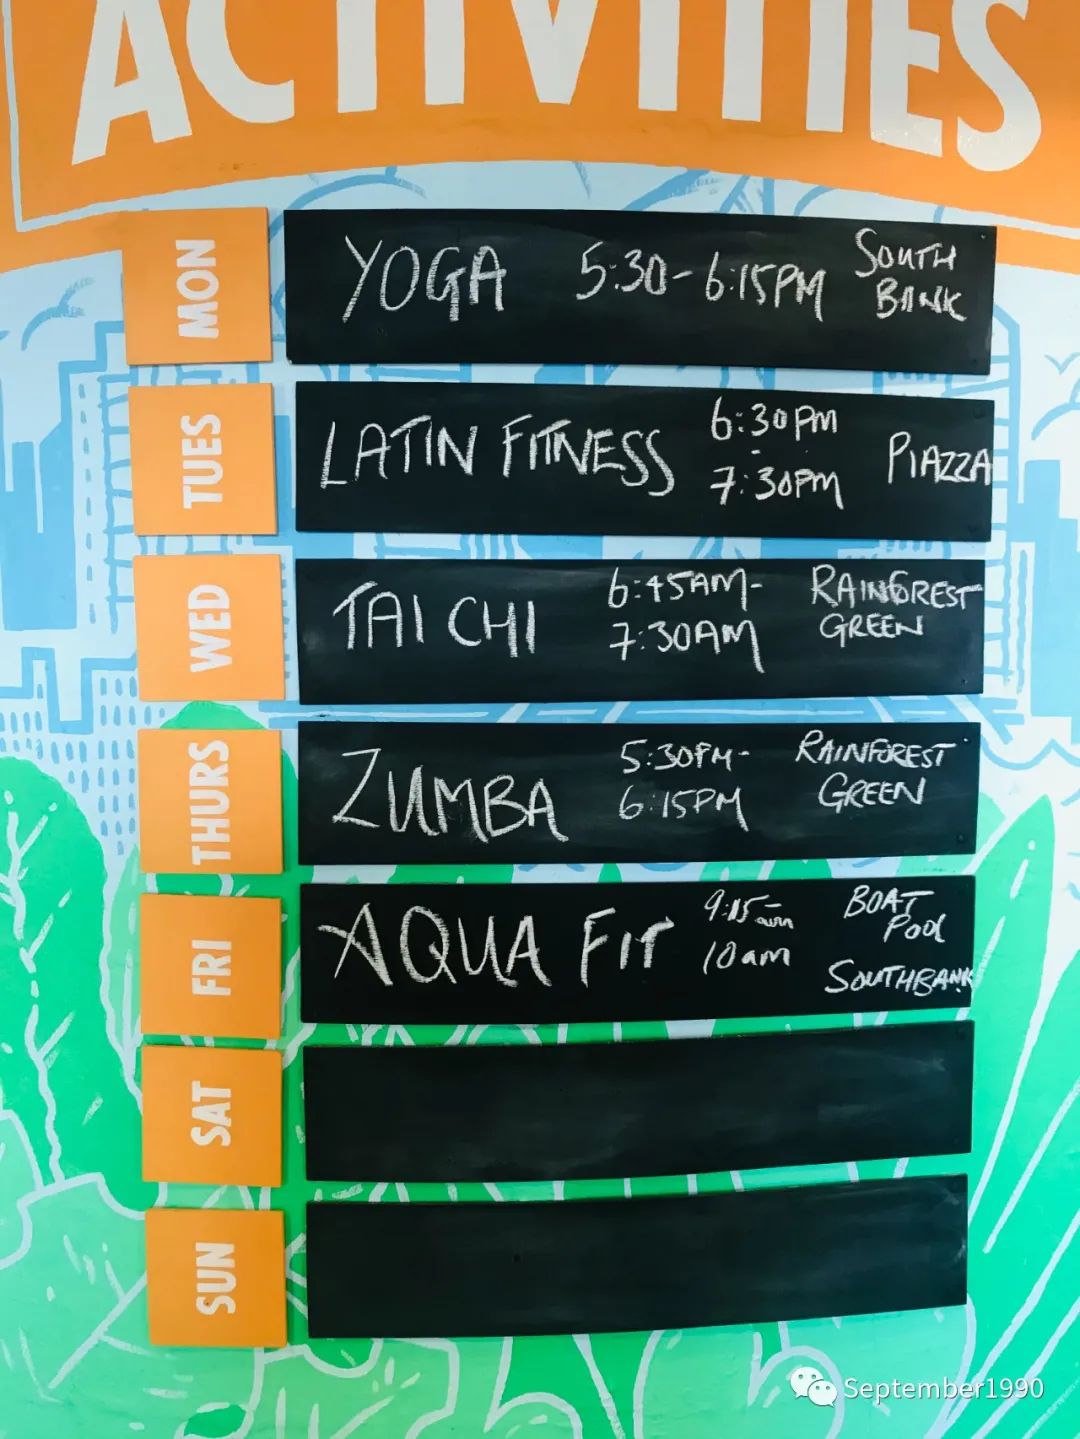 ACTIVITIES
MON
YOGA 5:30-6:15PM SOUTH
BANK
TUES
LATIN FITNESS 6:30PM
-
7:30PM PIAZZA
WED
TAI CHI 6:45AM-
7:30AM RAINFOREST
GREEN
THURS
ZUMBA 5:30PM-
6:15PM RAINFOREST
GREEN
FRI
AQUA FIT 9:15-am
10am BOAT
Pool
SOUTHBANK
SAT
SUN
September1990